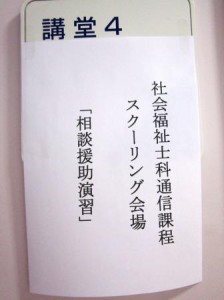 講堂4
社会福祉士科通信課程
スクーリング会場
「相談援助演習」